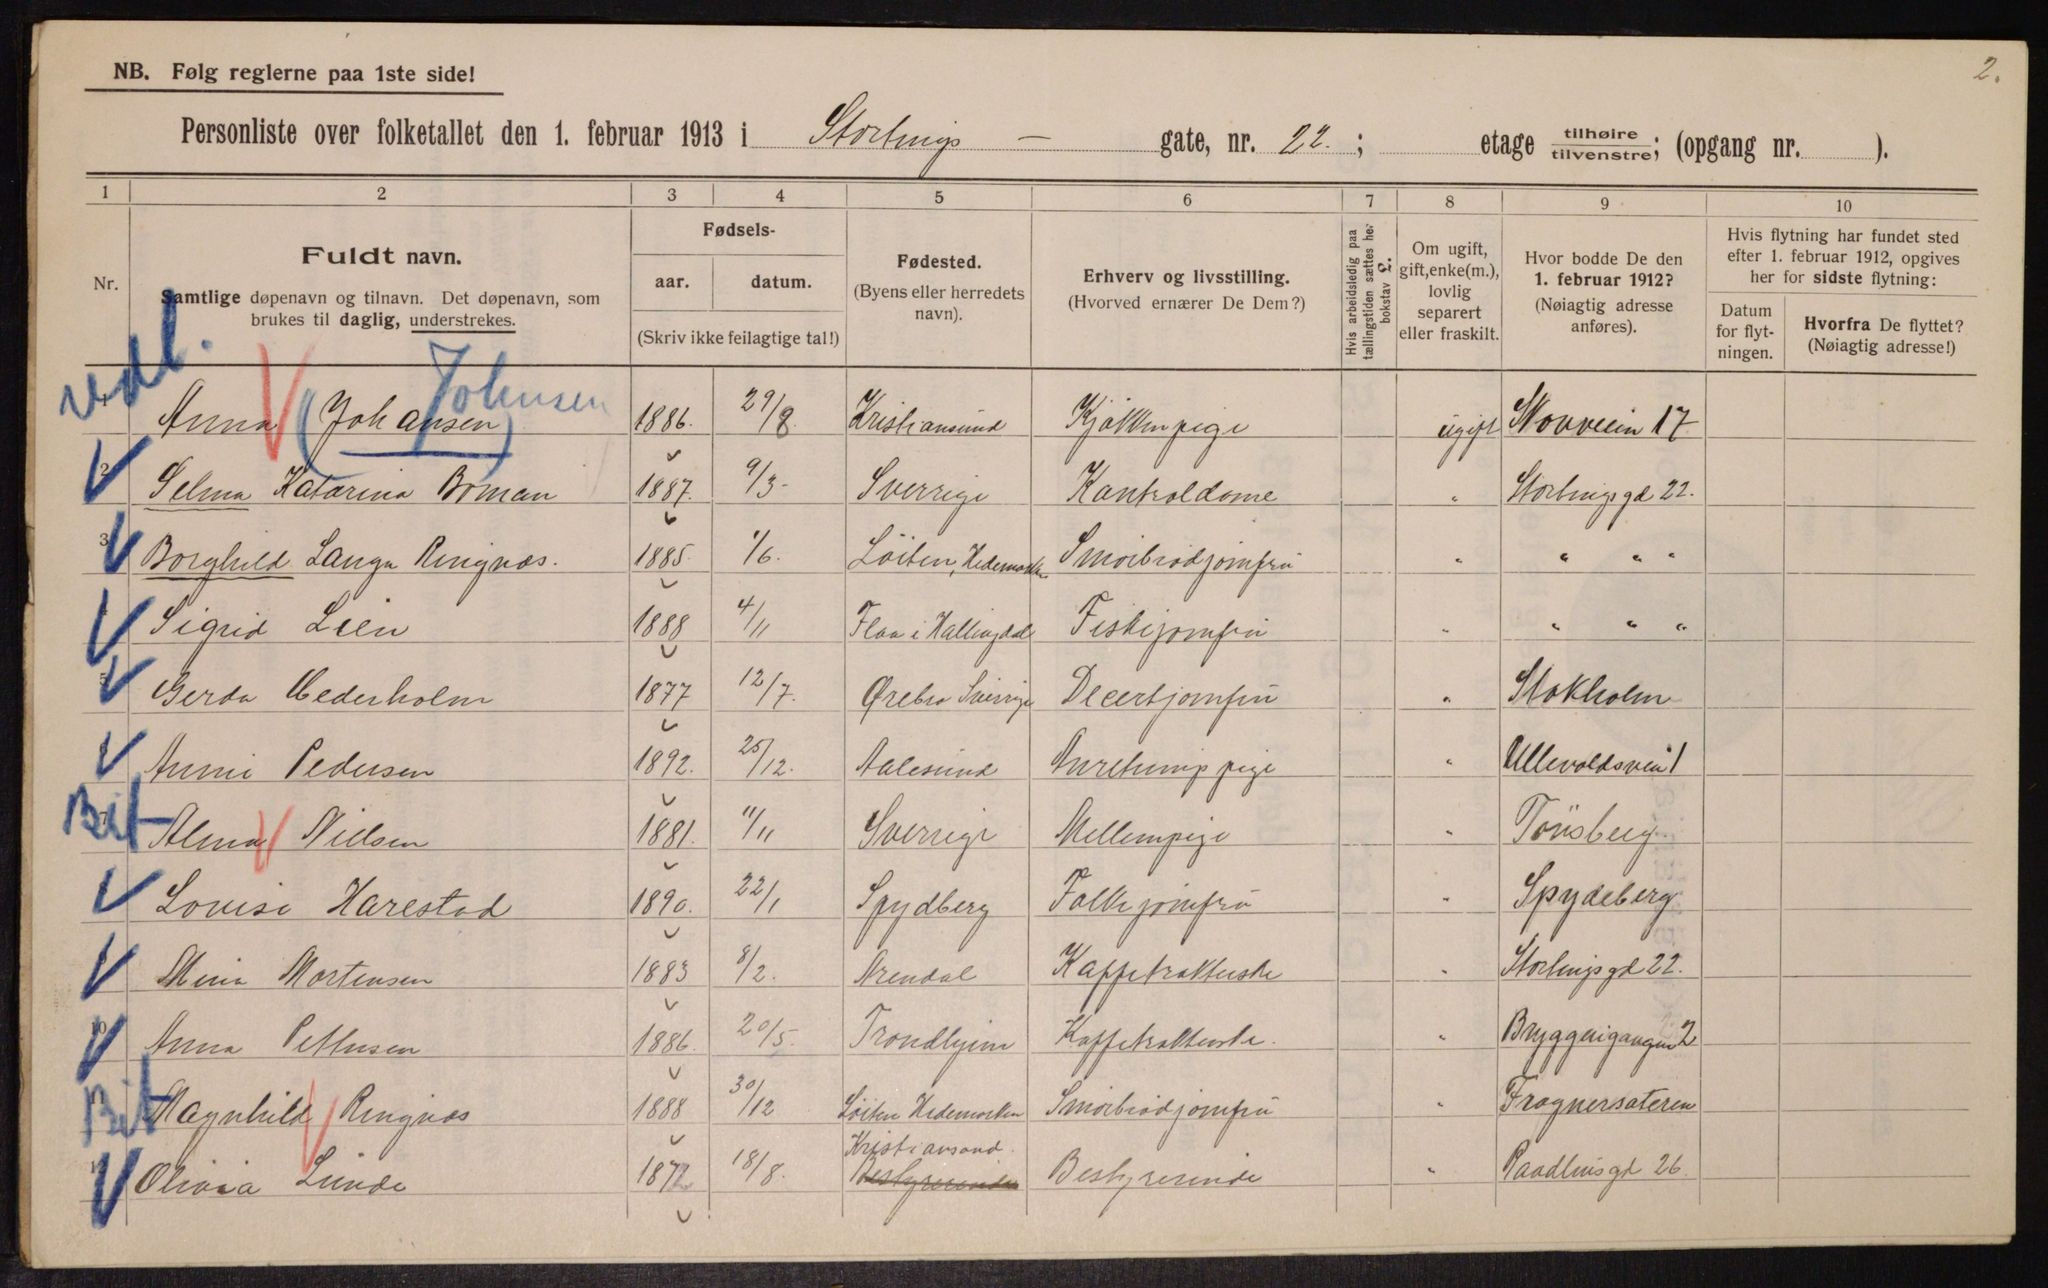 2.
NB. Følg reglerne paa 1ste side!
Personliste over folketallet den 1. februar 1913 i Stortings — gate, nr. 22. ; etage tilhøire / tilvenstre; (opgang nr. ).
1 2 3 4 5 6 7 8 9 10
Nr.
Fuldt navn.
Samtlige døpenavn og tilnavn. Det døpenavn, som
brukes til daglig, understrekes.
Fødsels-
aar. datum.
(Skriv ikke feilagtige tal!)
Fødested.
(Byens eller herredets
navn).
Erhverv og livsstilling.
(Hvorved ernærer De Dem?)
Hvis arbeidsledig paa
tællingstiden sættes her
bokstav L.
Om ugift,
gift, enke(m.),
lovlig
separert
eller fraskilt.
Hvor bodde De den
1. februar 1912?
(Nøiagtig adresse
anføres).
Hvis flytning har fundet sted
efter 1. februar 1912, opgives
her for sidste flytning:
Datum
for flyt-
ningen.
Hvorfra De flyttet?
(Nøiagtig adresse!)
vedl.
Johnsen
1 Anna (Johansen) 1886. 29/8. Kristiansund Kjøkkenpige ugift Skovveien 17
2 Selma Katarina Boman 1887. 9/3- Sverrige Kontroldame " Stortingsgd 22.
3 Borghild Lange Ringnæs. 1885. 1/6. Löiten, Hedemarken Smörbrödjomfru " " " "
4 Sigrid Lien 1888 4/11 Flaa i Hallingdal Fiskejomfru " " " "
5 Gerda Cederholm 1877 12/7. Ørebro Sverrige Decertjomfru " Stokholm
6 Anni Pedersen 1892. 25/12. Aalesund Anretnings pige " Ullevoldsvein 1
Bit
7 Alma Nielsen 1881. 11/11 Sverrige Mellempige " Tönsberg
Lovise Harestad 1890. 22/1 Spydberg Folkejomfru " Spydeberg
Mina Mortensen 1883 8/2. Arendal Kaffetrakterske " Stortingsgd 22.
10 Anna Pettersen 1886. 20/5. Trondhjem Kaffetrakterske. " Bryggerigangen 2
Bit
11 Magnhild Ringnæs 1888 30/12 Löiten Hedemarken Smörbrödjomfru " Frognersæteren
Kristiansand.
12 Olivia Lunde 1872 18/8. Bestyrerinde Bestyrerinde " Raadhusgd 26.